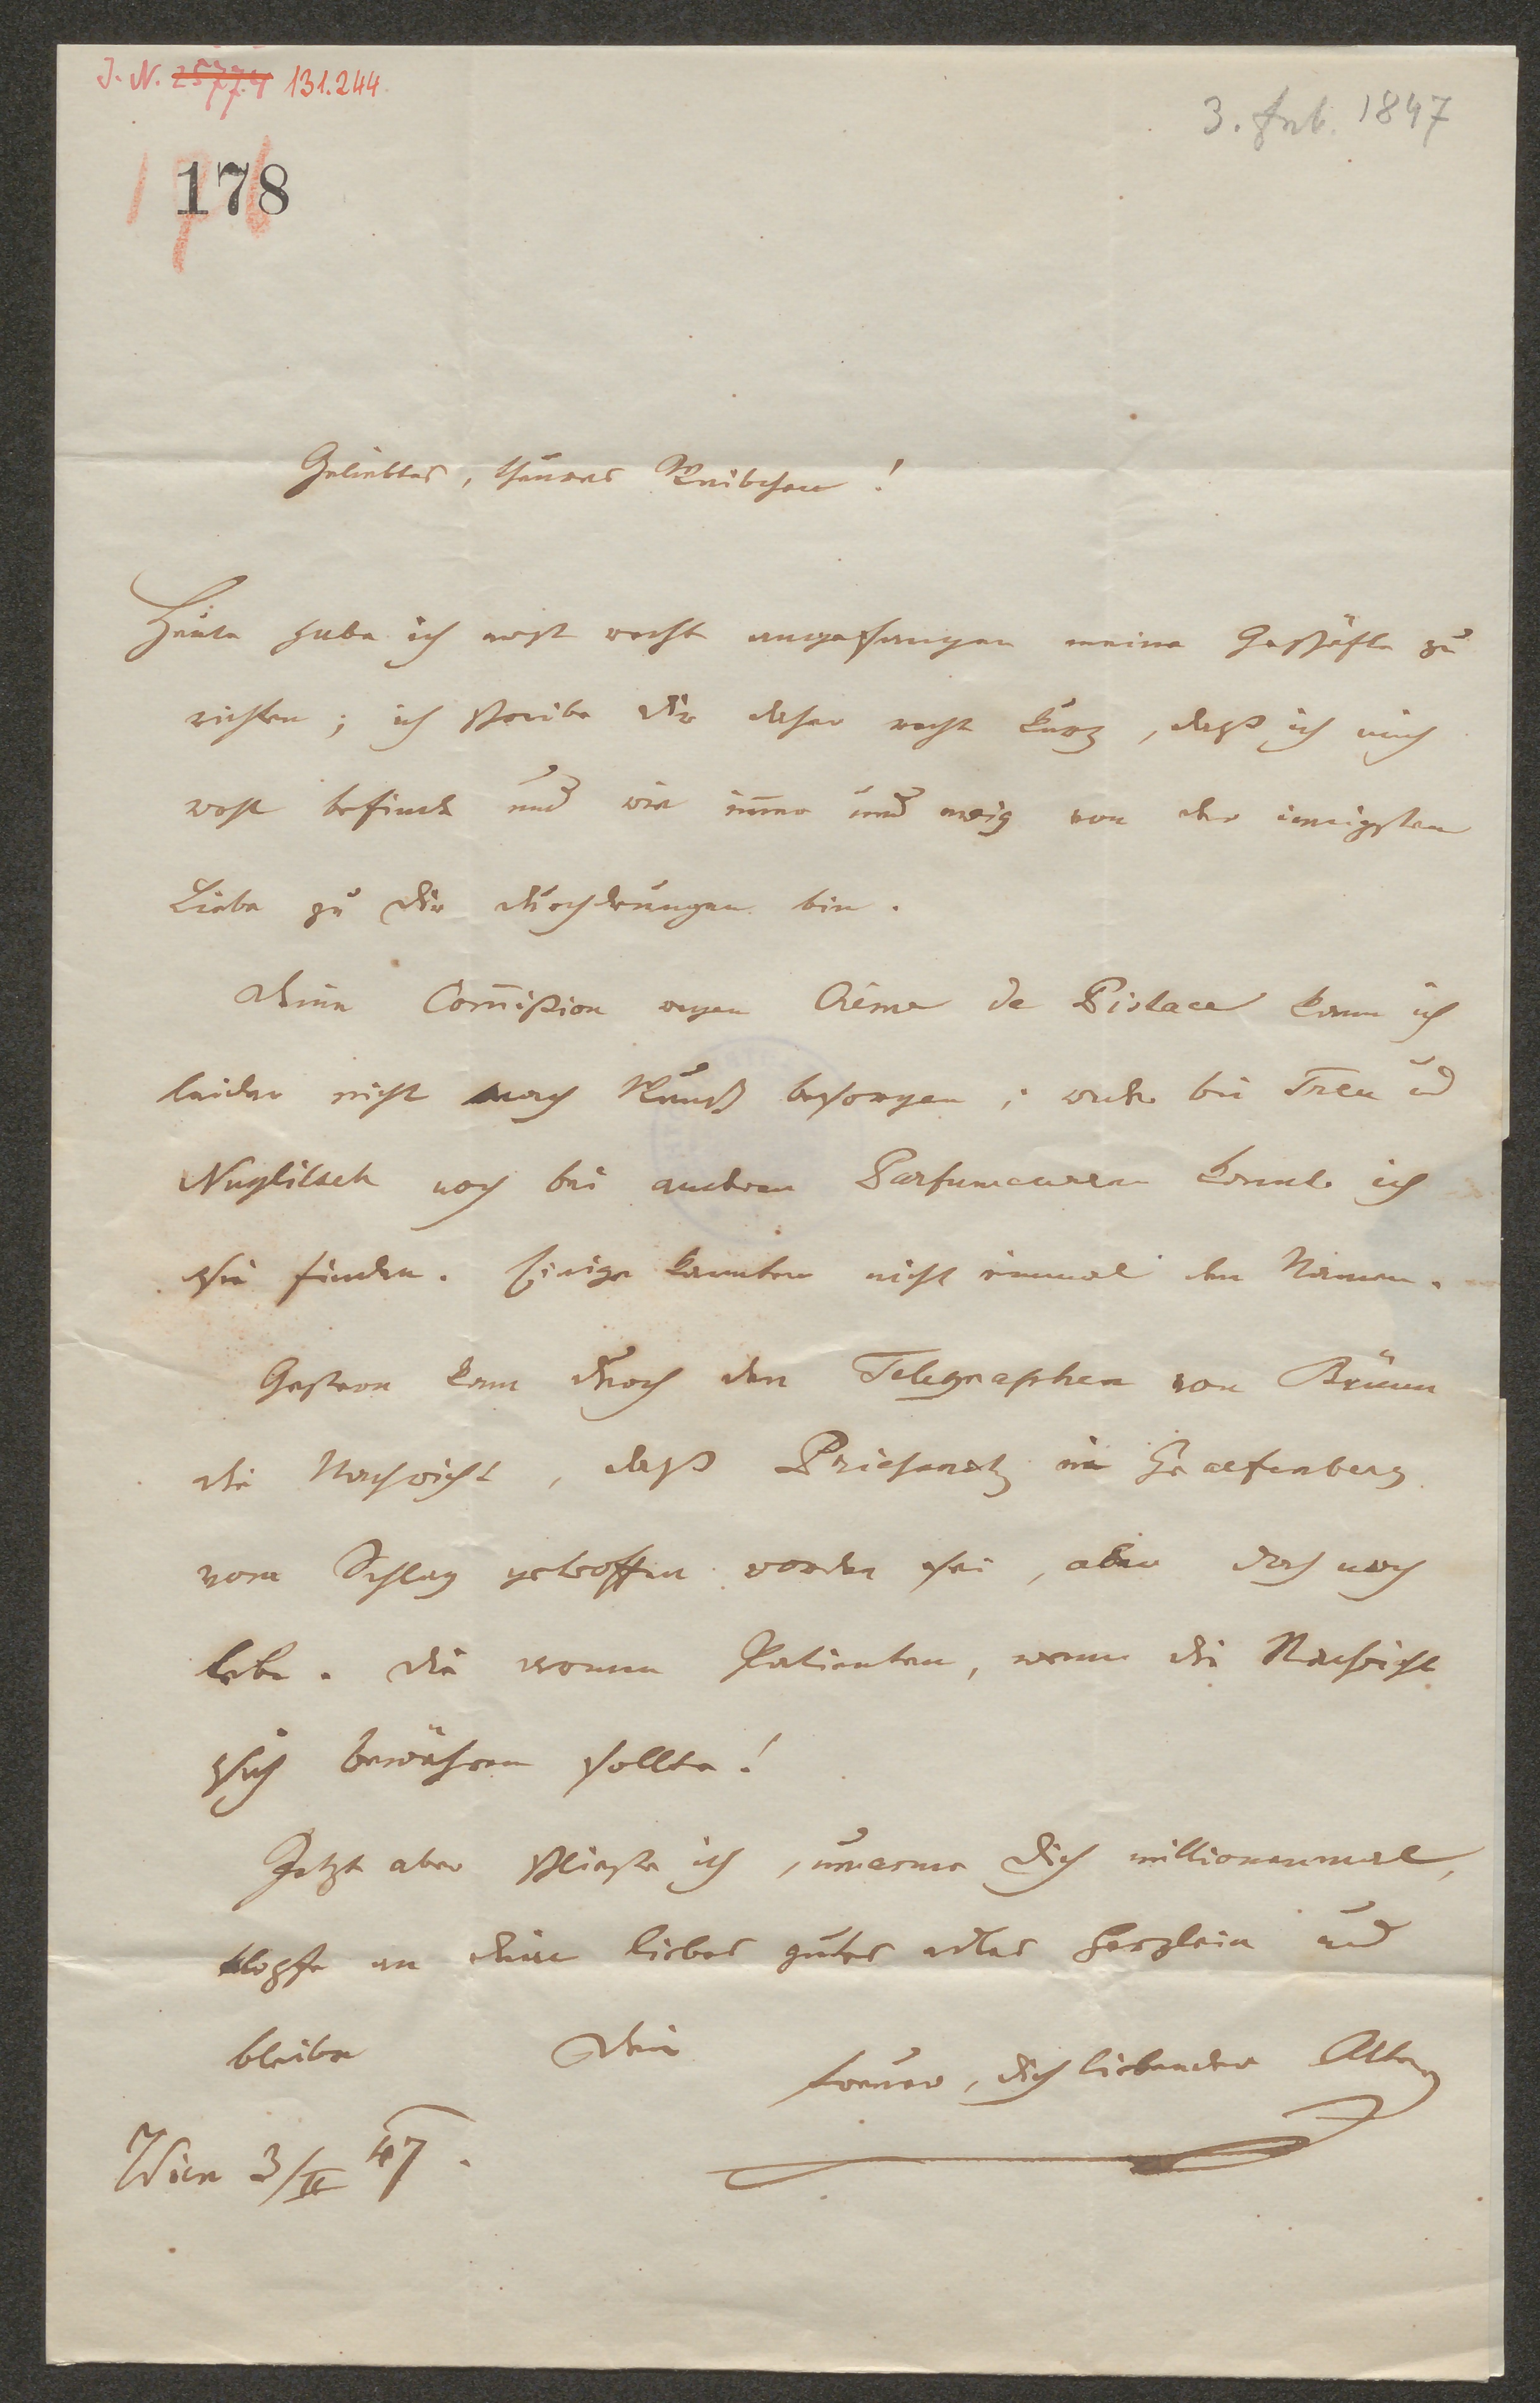 J. N. 25774 131.244
3. Feb. 1847
178
Geliebtes, theures Weibchen!
Heute habe ich erst recht angefangen meine Geschäfte zu
richten; ich schreibe dir daher recht kurz, daß ich mich
wohl befinde und wie immer und ewig von der innigsten
Liebe zu dir durchdrungen bin.
Deine Com̅ission wegen Crême de Pistace kann ich
leider nicht nach Wunsch besorgen; weder bei Treu und
Nuglitsch noch bei anderen Parfumeuren konnte ich
sie finden. Einige kannten nicht einmal den Namen.
Gestern kam durch den Telegraphen von Brünn
die Nachricht, daß Priesnitz in Graefenberg
vom Schlag getroffen worden sei, aber doch noch
lebe. Die armen Patienten, wenn die Nachricht
sich bewähren sollte!
Jetzt aber schließe ich, umarme dich millionenmal,
klopfe an dein liebes gutes edles Herzlein und
bleibe Dein
treuer, dich liebender Alter
Wien 3/II 47.